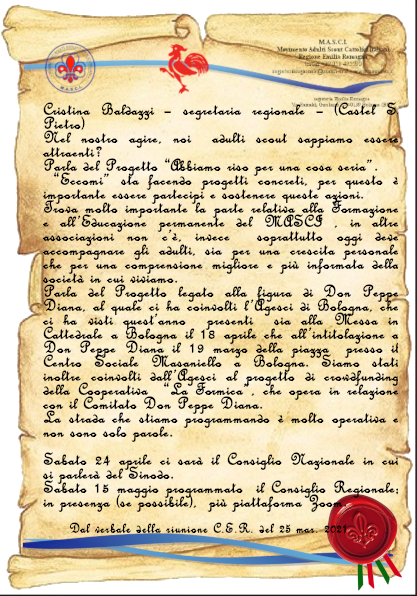 M.A.S.C.I.
Movimento Adulti Scout Cattolici Italiani
Regione Emilia Romagna
M.A.S.C.I.
Cristina Baldazzi – segretaria regionale – (Castel S.
Pietro)
Nel nostro agire, noi adulti scout sappiamo essere
attraenti?
Parla del Progetto "Abbiamo riso per una cosa seria".
"Eccomi" sta facendo progetti concreti, per questo è
importante essere partecipi e sostenere queste azioni.
Trova molto importante la parte relativa alla Formazione
e all'Educazione permanente del MASCI , in altre
associazioni non c'è, invece soprattutto oggi deve
accompagnare gli adulti, sia per una crescita personale
che per una comprensione migliore e più informata della
società in cui viviamo.
Parla del Progetto legato alla figura di Don Peppe
Diana, al quale ci ha coinvolti l'Agesci di Bologna, che
ci ha visti quest'anno presenti sia alla Messa in
Cattedrale a Bologna il 18 aprile che all'intitolazione a
Don Peppe Diana il 19 marzo della piazza presso il
Centro Sociale Masaniello a Bologna. Siamo stati
inoltre coinvolti dall'Agesci al progetto di crowdfunding
della Cooperativa "La Formica", che opera in relazione
con il Comitato Don Peppe Diana.
La strada che stiamo programmando è molto operativa e
non sono solo parole.
Sabato 24 aprile ci sarà il Consiglio Nazionale in cui
si parlerà del Sinodo.
Sabato 15 maggio programmato il Consiglio Regionale;
in presenza (se possibile), più piattaforma Zoom.
Dal verbale della riunione C.E.R. del 25 mar. 2021